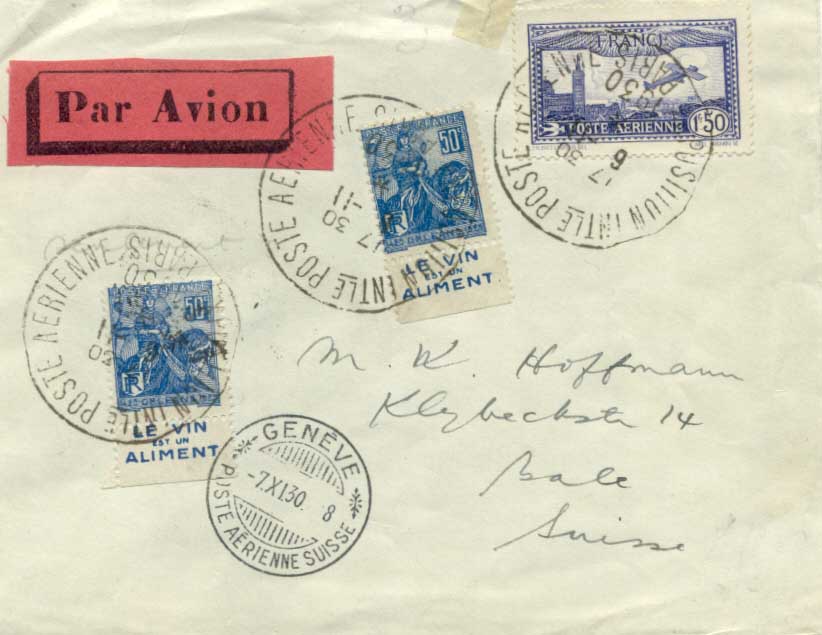 Par Avion
FRANCE
POSTE AERIENNE 1F50
EXPOSITION INTLE POSTE AERIENNE
PARIS
17 30
6
POSTES FRANCE
50c
RF
ORLEANS
LE VIN
EST UN
ALIMENT
INTLE POSTE AERIENNE
17 30
-11
POSTES FRANCE
50c
RF
ORLEANS
LE VIN
EST UN
ALIMENT
INTLE POSTE AERIENNE
PARIS
M. K. Hoffmann
Klybeckstr 14
Bale
Suisse
GENÈVE
-7.XI.30. 8
POSTE AÉRIENNE SUISSE